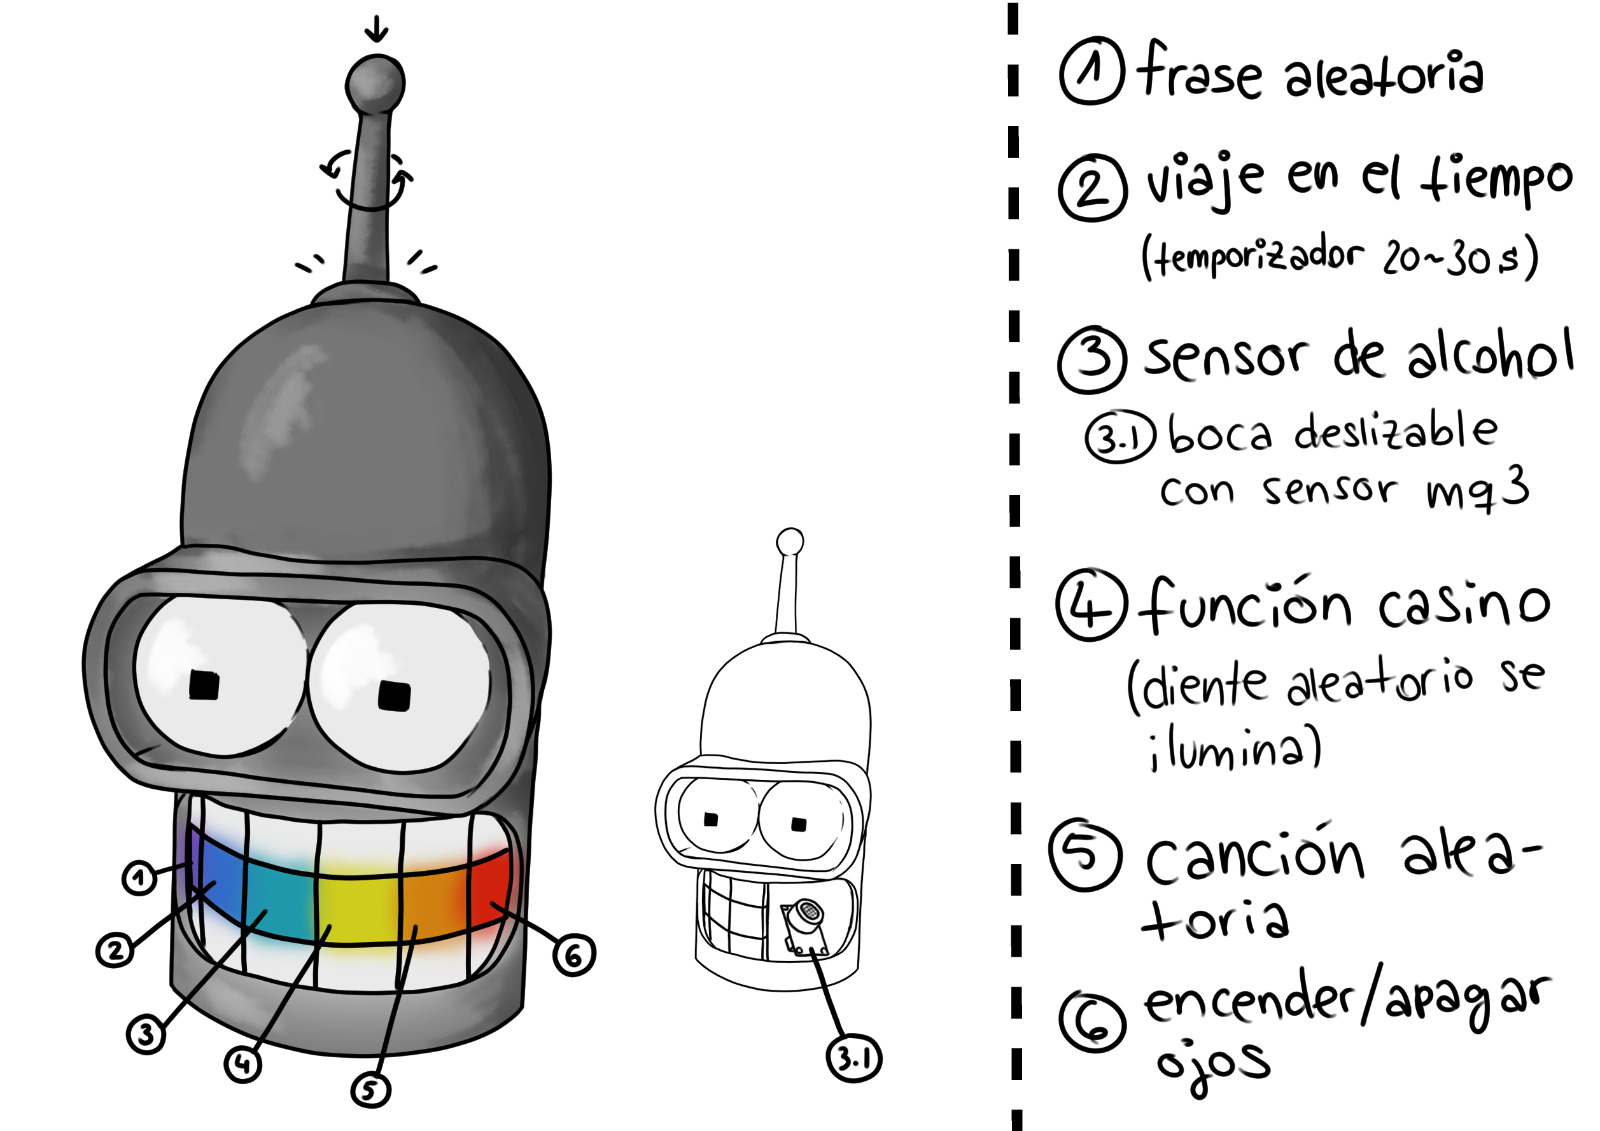 1 frase aleatoria
2 viaje en el tiempo
(temporizador 20~30s)
3 sensor de alcohol
3.1 boca deslizable
con sensor mq3
4 función casino
(diente aleatorio se
ilumina)
5 canción alea-
toria
6 encender/apagar
ojos
1
2
3
4
5
6
3.1